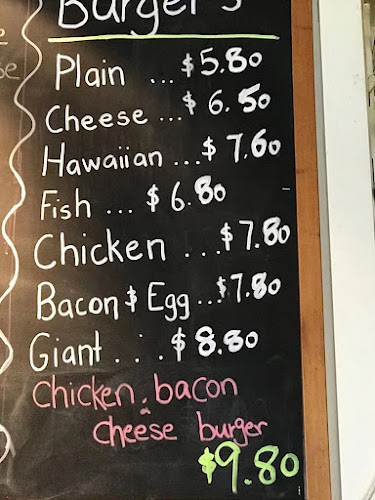 Burger's
Plain ... $5.80
Cheese ... $6.50
Hawaiian ... $7.60
Fish ... $6.80
Chicken ... $7.80
Bacon & Egg ... $7.80
Giant . . . $8.80
Chicken, bacon
& cheese burger
$9.80